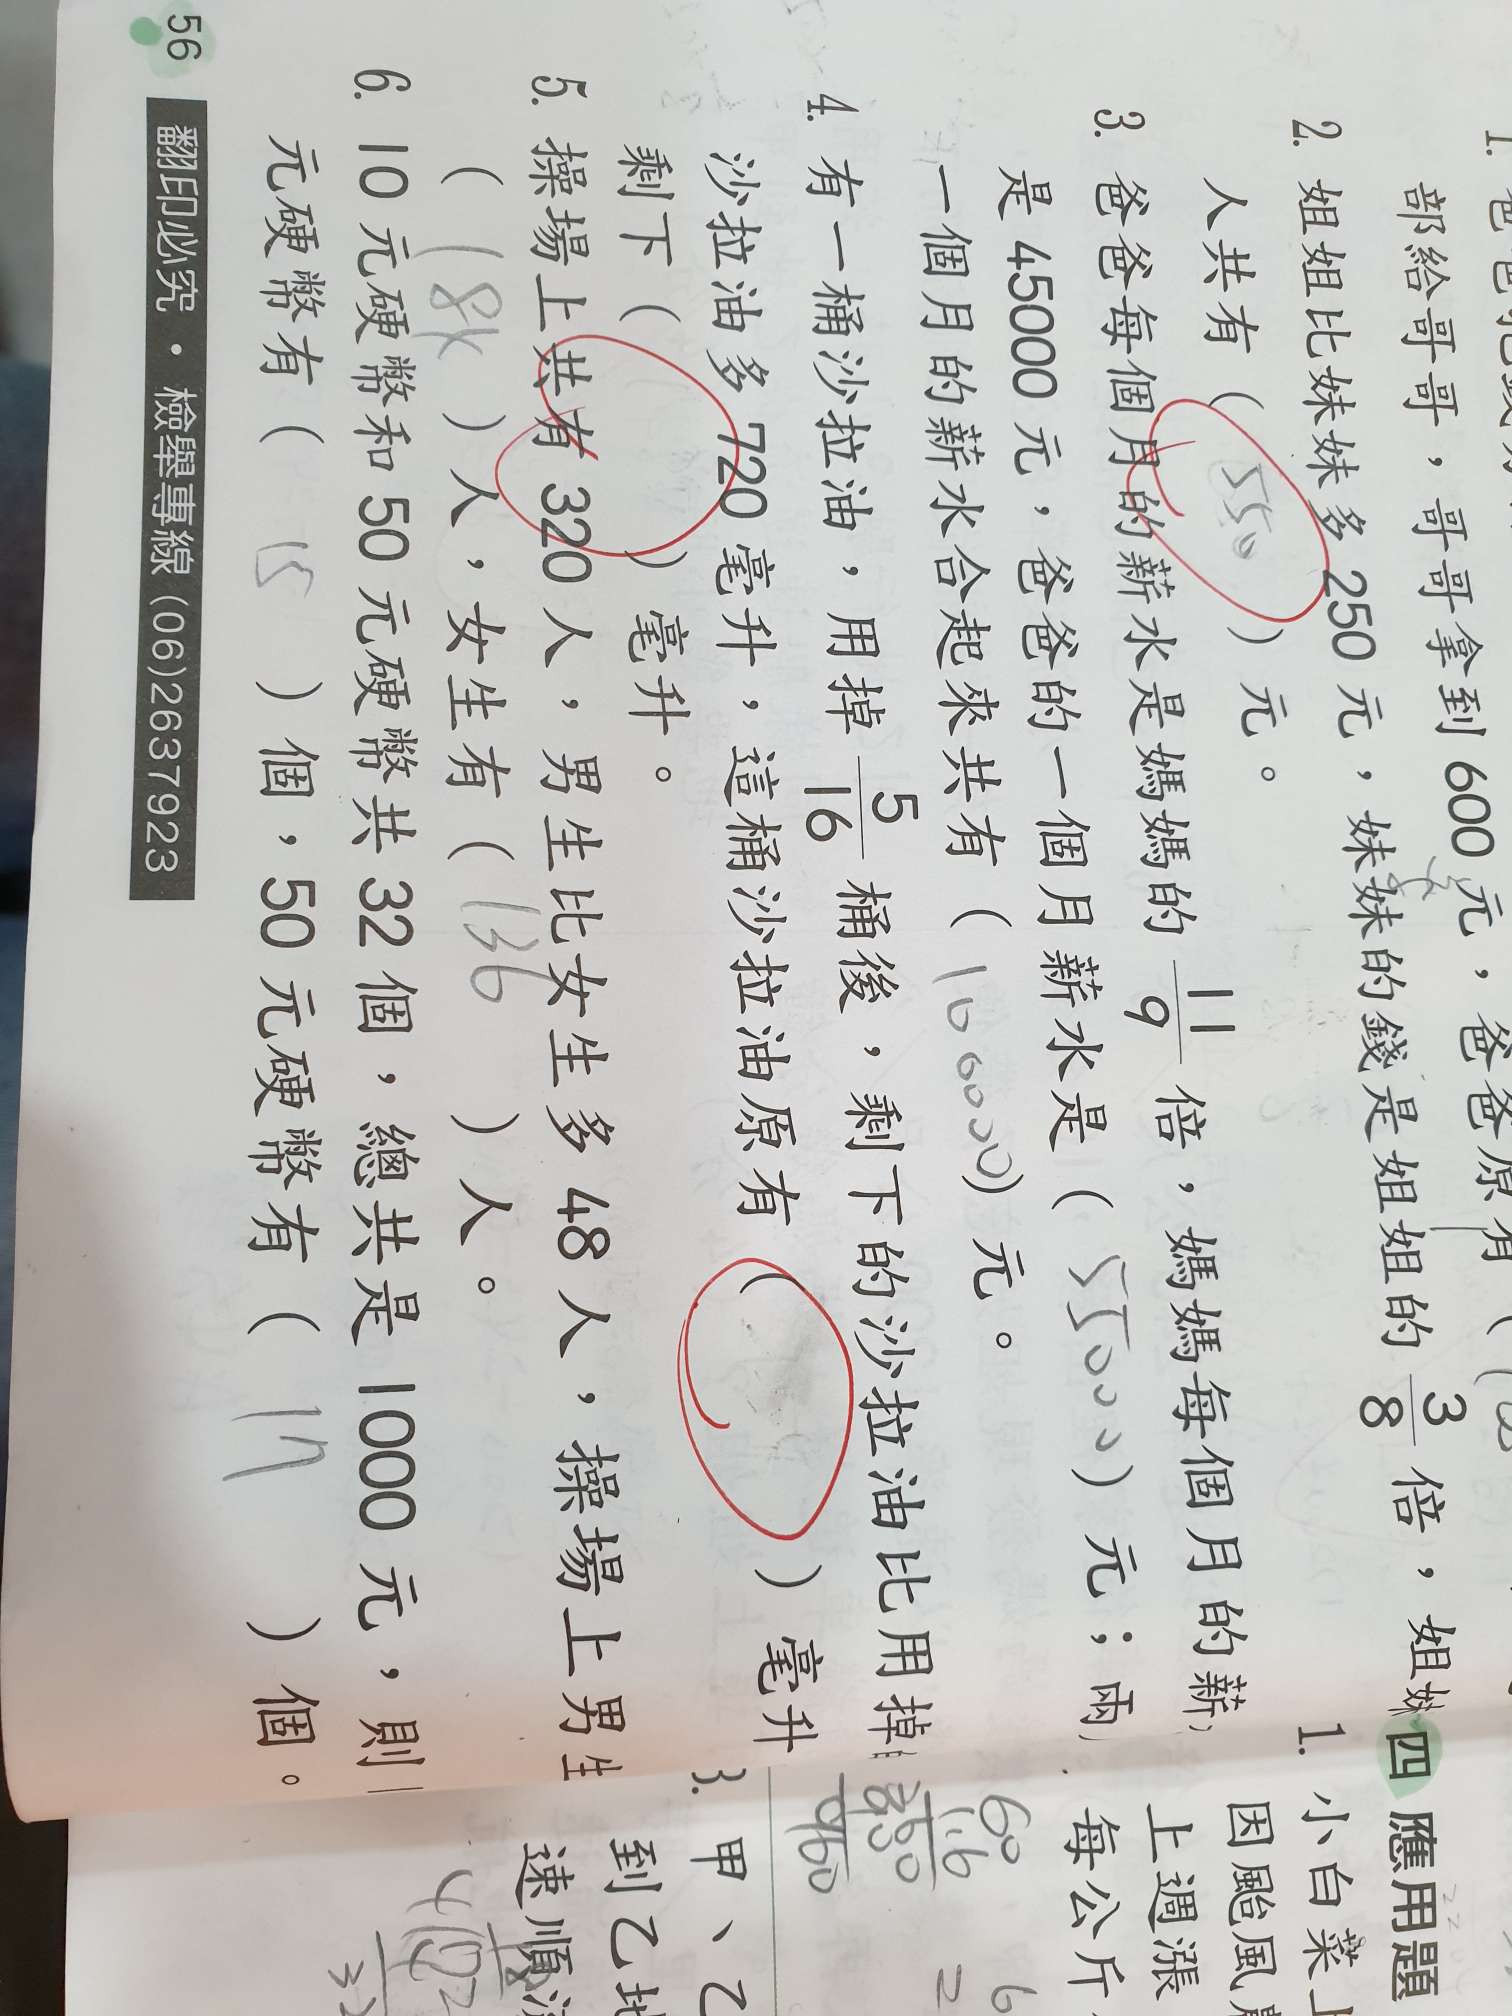 部給哥哥，哥哥拿到600元，爸爸原有(
2. 姐姐比妹妹多250元，妹妹的錢是姐姐的3/8倍，姐妹
人共有( 550 )元。
3. 爸爸每個月的薪水是媽媽的11/9倍，媽媽每個月的薪
是45000元，爸爸的一個月薪水是( 55000 )元；兩
一個月的薪水合起來共有( 100000 )元。
4. 有一桶沙拉油，用掉5/16桶後，剩下的沙拉油比用掉
沙拉油多720毫升，這桶沙拉油原有( )毫升
剩下( )毫升。
5. 操場上共有320人，男生比女生多48人，操場上男生
( 184 )人，女生有( 136 )人。
6. 10元硬幣和50元硬幣共32個，總共是1000元，則
元硬幣有( 15 )個，50元硬幣有( 17 )個。
56 翻印必究·檢舉專線(06)2637923
四 應用題
1. 小白菜上
因颱風
上週漲
每公斤
60
1.6
360
60
960
3. 甲、乙
到乙地
速順